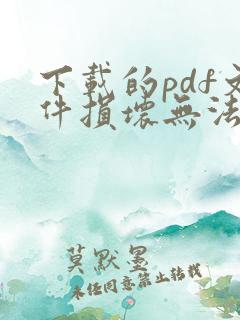 下載的pdf文
件損壞無法
莫默墨
未经同意禁止转载